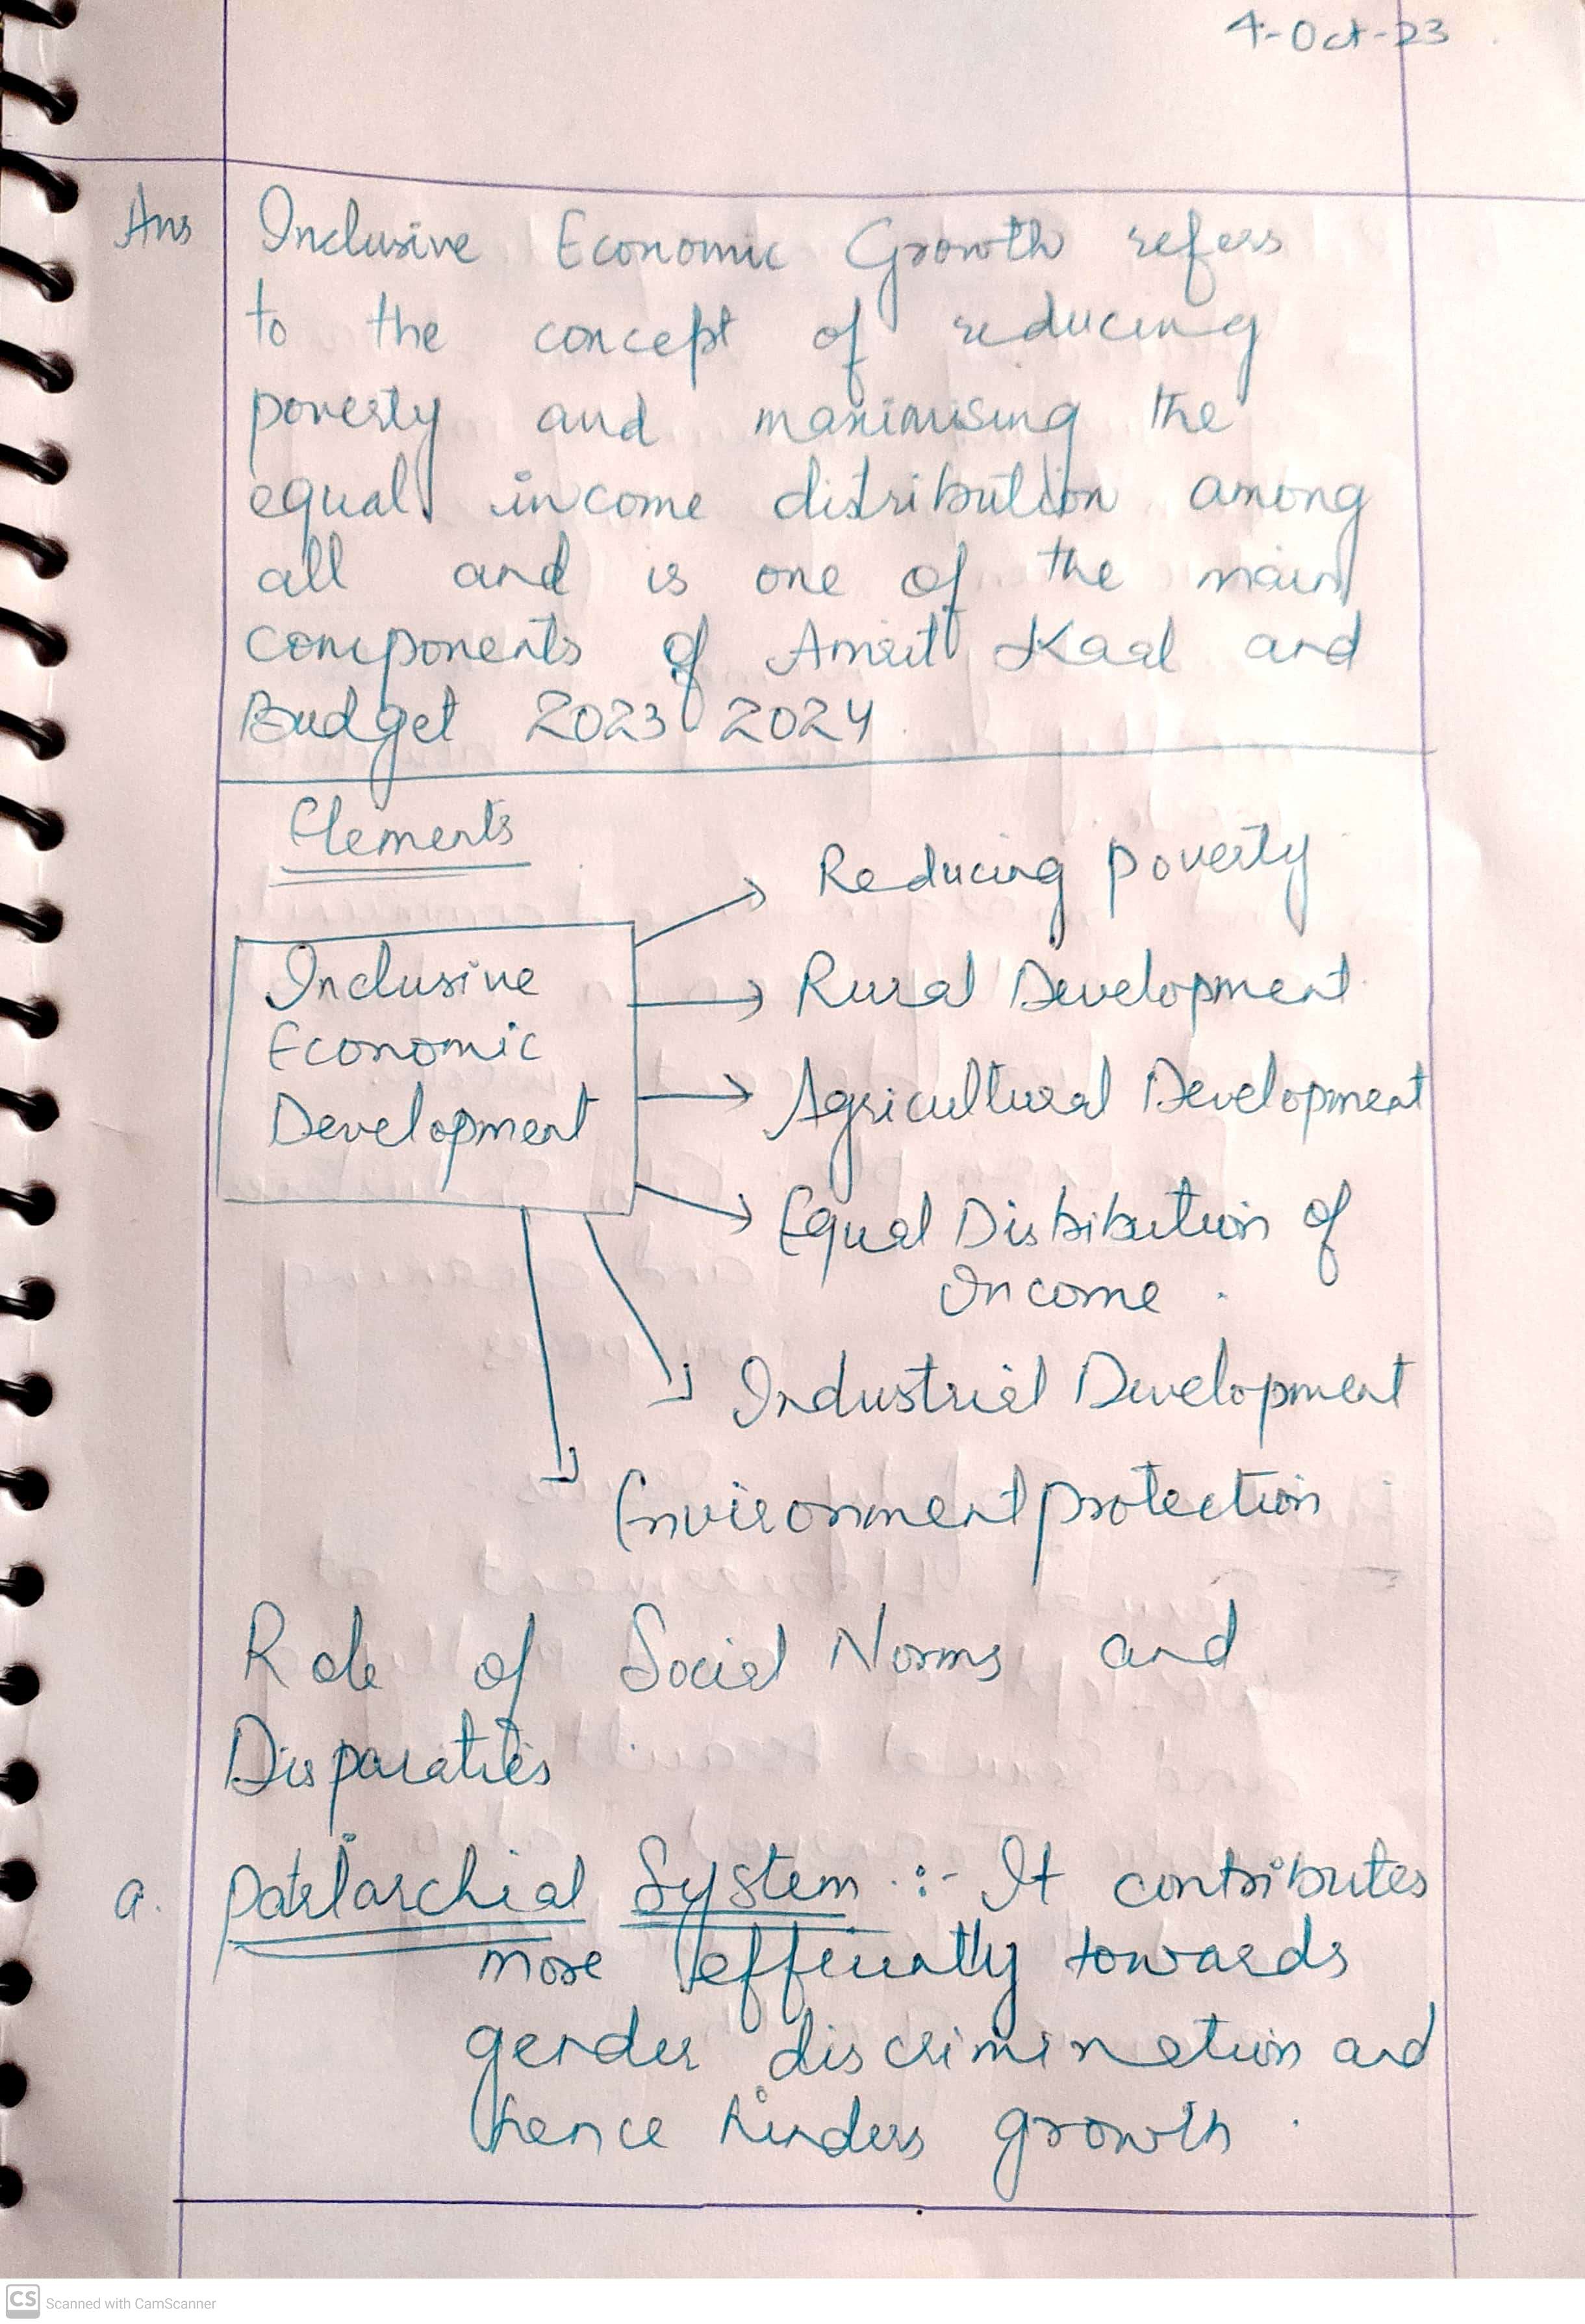 4-Oct-23
Ans Inclusive Economic Growth refers
to the concept of reducing
poverty and maximising the
equal income distribution among
all and is one of the main
components of Amrit Kaal and
Budget 2023 2024
Elements
Inclusive
Economic
Development
Reducing poverty
Rural Development
Agricultural Development
Equal Distribution of
Income.
Industrial Development
Environment protection
Role of Social Norms and
Disparaties
a. Patriarchial System :- It contributes
more efficiently towards
gender discrimination and
hence hinders growth.
CS Scanned with CamScanner